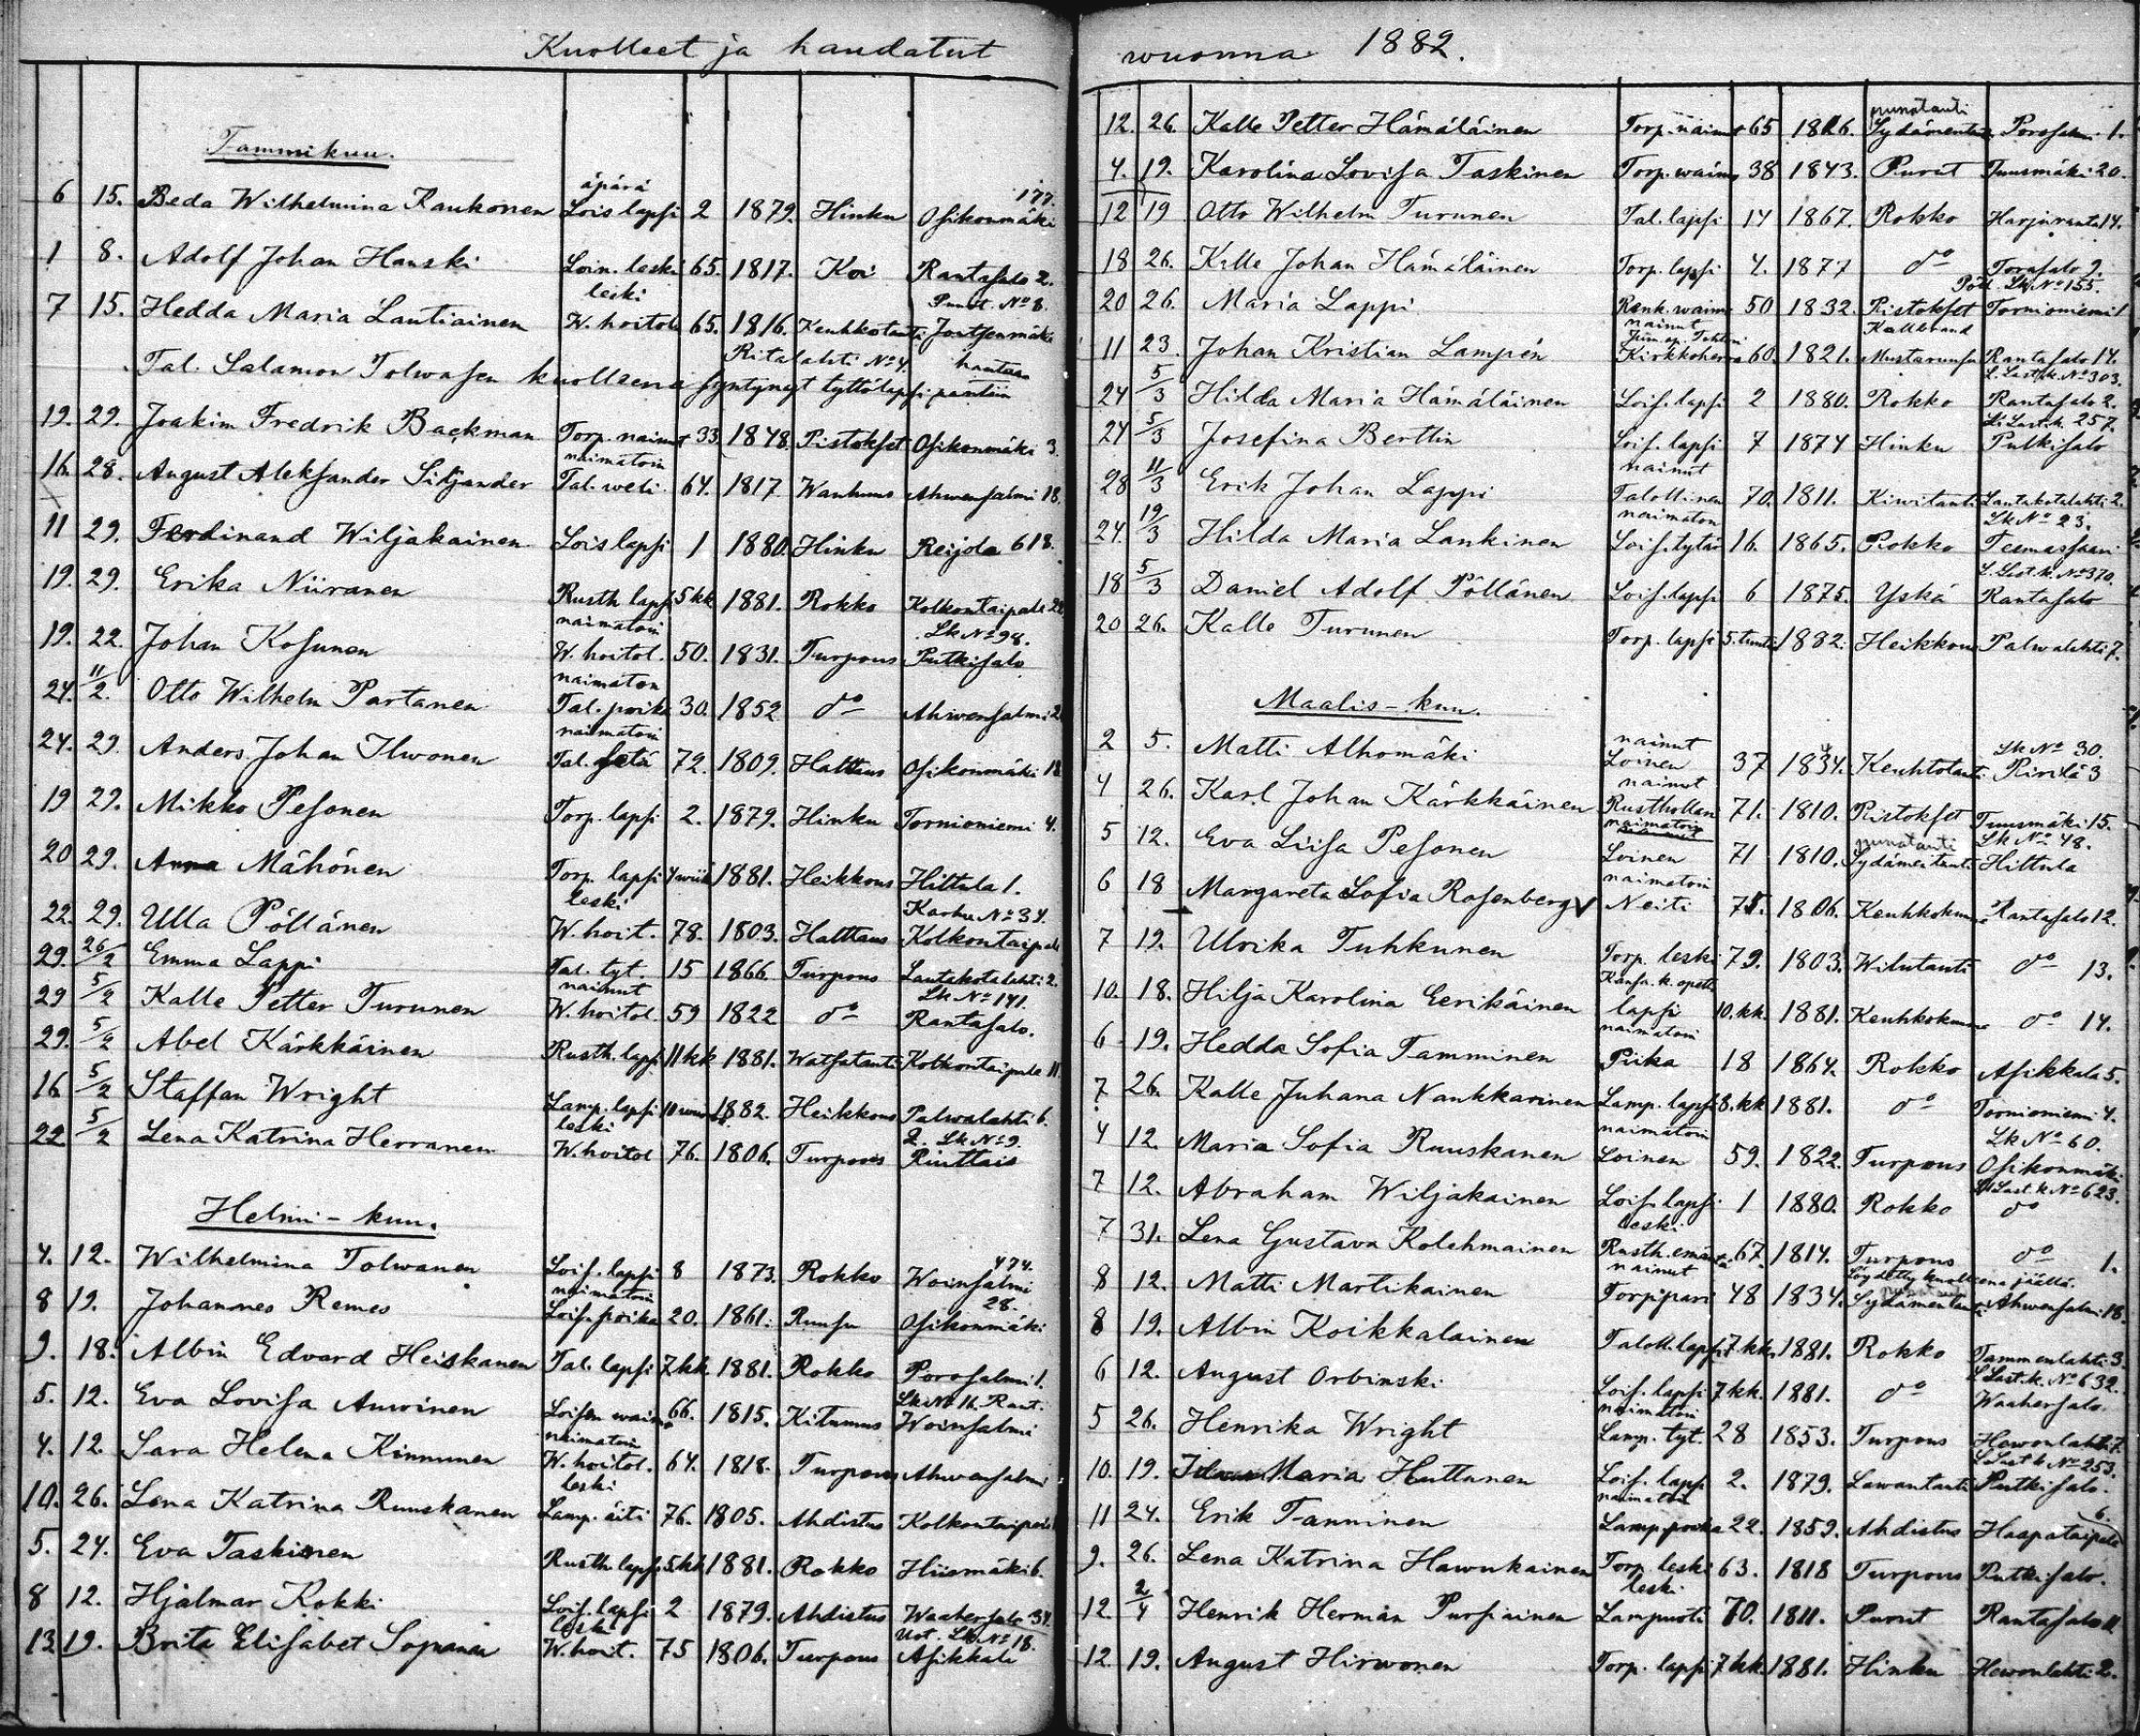 Kuolleet ja haudatut
Tammikuu.
6 15. Beda Wilhelmina Raukonen äpärä Lois lapsi 2 1879. Hinku Osikonmäki 177.
1 8. Adolf Johan Hanski Loin. leski 65. 1817. Koi Rantasalo 2.
7 15. Hedda Maria Lautiainen leski W. hoitol. 65. 1816. Keuhkotauti Punt. No 8. Joutsenmäki
Tal. Salamon Tolwasen kuolleena syntynyt tyttölapsi pantiin hautaan Ritalahti No 4.
19. 29. Joakim Fredrik Backman Torp. nainut 33. 1848. Pistokset Osikonmäki 3.
16. 28. August Aleksander Siljander naimatoin Tal. weli 64. 1817 Wanhuus Ahwensalmi 18.
11 29. Ferdinand Wiljakainen Lois lapsi 1 1880. Hinku Reijola 618.
19. 29. Erika Niiranen Rusth. lapsi 5 kk 1881. Rokko Kolkontaipale
19. 22. Johan Kosunen naimatoin W. hoitol. 50. 1831. Turpous Lk No 98. Putkisalo
24. 11/2. Otto Wilhelm Partanen naimaton Tal. poika 30. 1852 do Ahwensalmi 2
24. 29. Anders Johan Ilwonen naimatoin Tal. setä 72. 1809. Halttaus Osikonmäki 18
19 29. Mikko Pesonen Torp. lapsi 2. 1879. Hinku Tornioniemi 4.
20 29. Anna Mähönen Torp. lapsi 4 wiik 1881. Heikkous Hittula 1.
22. 29. Ulla Pöllänen leski W. hoit. 78. 1803. Halttaus Karhu No 34. Kolkontaipale
29. 26/2 Emma Lappi Tal. tyt. 15 1866. Turpous Lautakotalahti 2.
29 5/2 Kalle Petter Turunen nainut W. hoitol. 59 1822 do Lk No 141. Rantasalo.
29. 5/2 Abel Kärkkäinen Rusth. lapsi 11 kk 1881. Watsatauti Kolkontaipale 11.
16 5/2 Staffan Wright Lamp. lapsi 10 1882. Heikkous Palwalahti 6.
22 5/2 Lena Katrina Herranen leski W. hoitol 76. 1806. Turpous Lk No 9. Pinttais
Helmi-kuu.
4. 12. Wilhelmina Tolwanen Lois. lapsi 8 1873. Rokko 474. Woinsalmi
8 19. Johannes Remes naimatoin Lois. poika 20. 1861. Ruusu 28. Osikonmäki
9. 18. Albin Edvard Heiskanen Tal. lapsi 7 kk. 1881. Rokko Porosalmi 1.
5. 12. Eva Lovisa Auwinen Loisen waimo 66. 1815. Kitumus Lk No 16. Rant. Woinsalmi
4. 12. Sara Helena Kinnunen naimatoin W. hoitol. 64. 1818. Turpous Ahwensalmi
10. 26. Lena Katrina Ruuskanen leski Lamp. äiti 76. 1805. Ahdistus Kolkontaipale
5. 24. Eva Taskinen Rusth. lapsi 5 kk 1881. Rokko Hiismäki 6.
8 12. Hjalmar Kokki Lois. lapsi 2 1879. Ahdistus Waahersalo 34.
13 19. Brita Elisabet Sopanen leski W. hoit. 75 1806. Turpous Lk No 18. Asikkala
wuonna 1882.
12. 26. Kalle Petter Hämäläinen Torp. nainut 65 1816. punatauti Sydämentau. Porosalmi 1.
4. 19. Karolina Lovisa Taskinen Torp. waimo 38 1843. Purut Tuusmäki 20.
12 19 Otto Wilhelm Turunen Tal. lapsi 14 1867. Rokko Harjuranta 14.
18 26. Kalle Johan Hämäläinen Torp. lapsi 4. 1877 do Torasalo 9.
20 26. Maria Lappi Renk. waimo 50 1832. Pistokset Pöll. Lk. No 155. Tornioniemi 1
11 23. Johan Kristian Lampén nainut Kirkkoherra 60. 1821. Kallbrand Mustaruusu Rantasalo 14.
24 5/3 Hilda Maria Hämäläinen Lois. lapsi 2 1880. Rokko L. Last. k. No 303. Rantasalo 2.
24 5/3 Josefina Bertlin Lois. lapsi 7 1874 Hinku Li Last. k. 257. Putkisalo
28 11/3 Erik Johan Lappi nainut Talollinen 70. 1811. Kiwitauti Lautakotalahti 2.
24. 19/3 Hilda Maria Lankinen naimaton Lois. tytär 16. 1865. Rokko Lk No 23. Teemassaari
18 5/3 Daniel Adolf Pöllänen Lois. lapsi 6 1875. Yskä L. Last. k. No 370. Rantasalo
20 26. Kalle Turunen Torp. lapsi 5. tuntia 1882. Heikkous Palwalahti 7.
Maalis-kuu.
2 5. Matti Alhomäki nainut Loinen 37 1834. Keuhkotauti Lk No 30. Pirilä 3
4 26. Karl Johan Kärkkäinen nainut Rusthollari 71. 1810. Pistokset Tuusmäki 15.
5 12. Eva Liisa Pesonen naimatoin Loinen 71 1810. punatauti Sydämentauti Lk No 48. Hittula
6 18 Margareta Sofia Rosenberg naimatoin Neiti 75. 1806. Keuhkokuume Rantasalo 12.
7 19. Ulrika Tuhkunen Torp. leski 79. 1803. Wilutauti do 13.
10. 18. Hilja Karolina Eerikäinen Kansa. k. opett. lapsi 10. kk. 1881. Keuhkokuume do 14.
6 19. Hedda Sofia Tamminen naimatoin Piika 18 1864. Rokko Asikkala 5.
7 26. Kalle Juhana Nankkarinen Lamp. lapsi 8. kk 1881. do Tornioniemi 4.
4 12. Maria Sofia Ruuskanen naimatoin Loinen 59. 1822. Turpous Lk No 60. Osikonmäki
7 12. Abraham Wiljakainen Lois. lapsi 1 1880. Rokko Last. k No 623. do
7 31. Lena Gustava Kolehmainen leski Rusth. emäntä 67. 1814. Turpous do 1.
8 12. Matti Martikainen nainut Torppari 48 1834. Löydetty kuolleena jäällä. Sydämentauti Ahwensalmi 18.
8 19. Albin Koikkalainen Taloll. lapsi 7 kk. 1881. Rokko Tammenlahti 3.
6 12. August Orbinski Lois. lapsi 7 kk. 1881. do L Last. k. No 632. Waahersalo.
5 26. Henrika Wright naimatoin Lamp. tyt. 28 1853. Turpous Hewonlahti 7.
10. 19. Maria Huttunen Lois. lapsi 2. 1879. Lawantauti Last k No 253. Putkisalo.
11 24. Erik Tanninen naimatoin Lamp. poika 22. 1859. Ahdistus 6. Haapataipale
9. 26. Lena Katrina Hawukainen Torp. leski 63. 1818 Turpous Putkisalo.
12. 2/4 Henrik Herman Pursiainen leski Lampuoti 70. 1811. Purut Rantasalo 11
12. 19. August Hirwonen Torp. lapsi 7 kk. 1881. Hinku Hewonlahti 2.